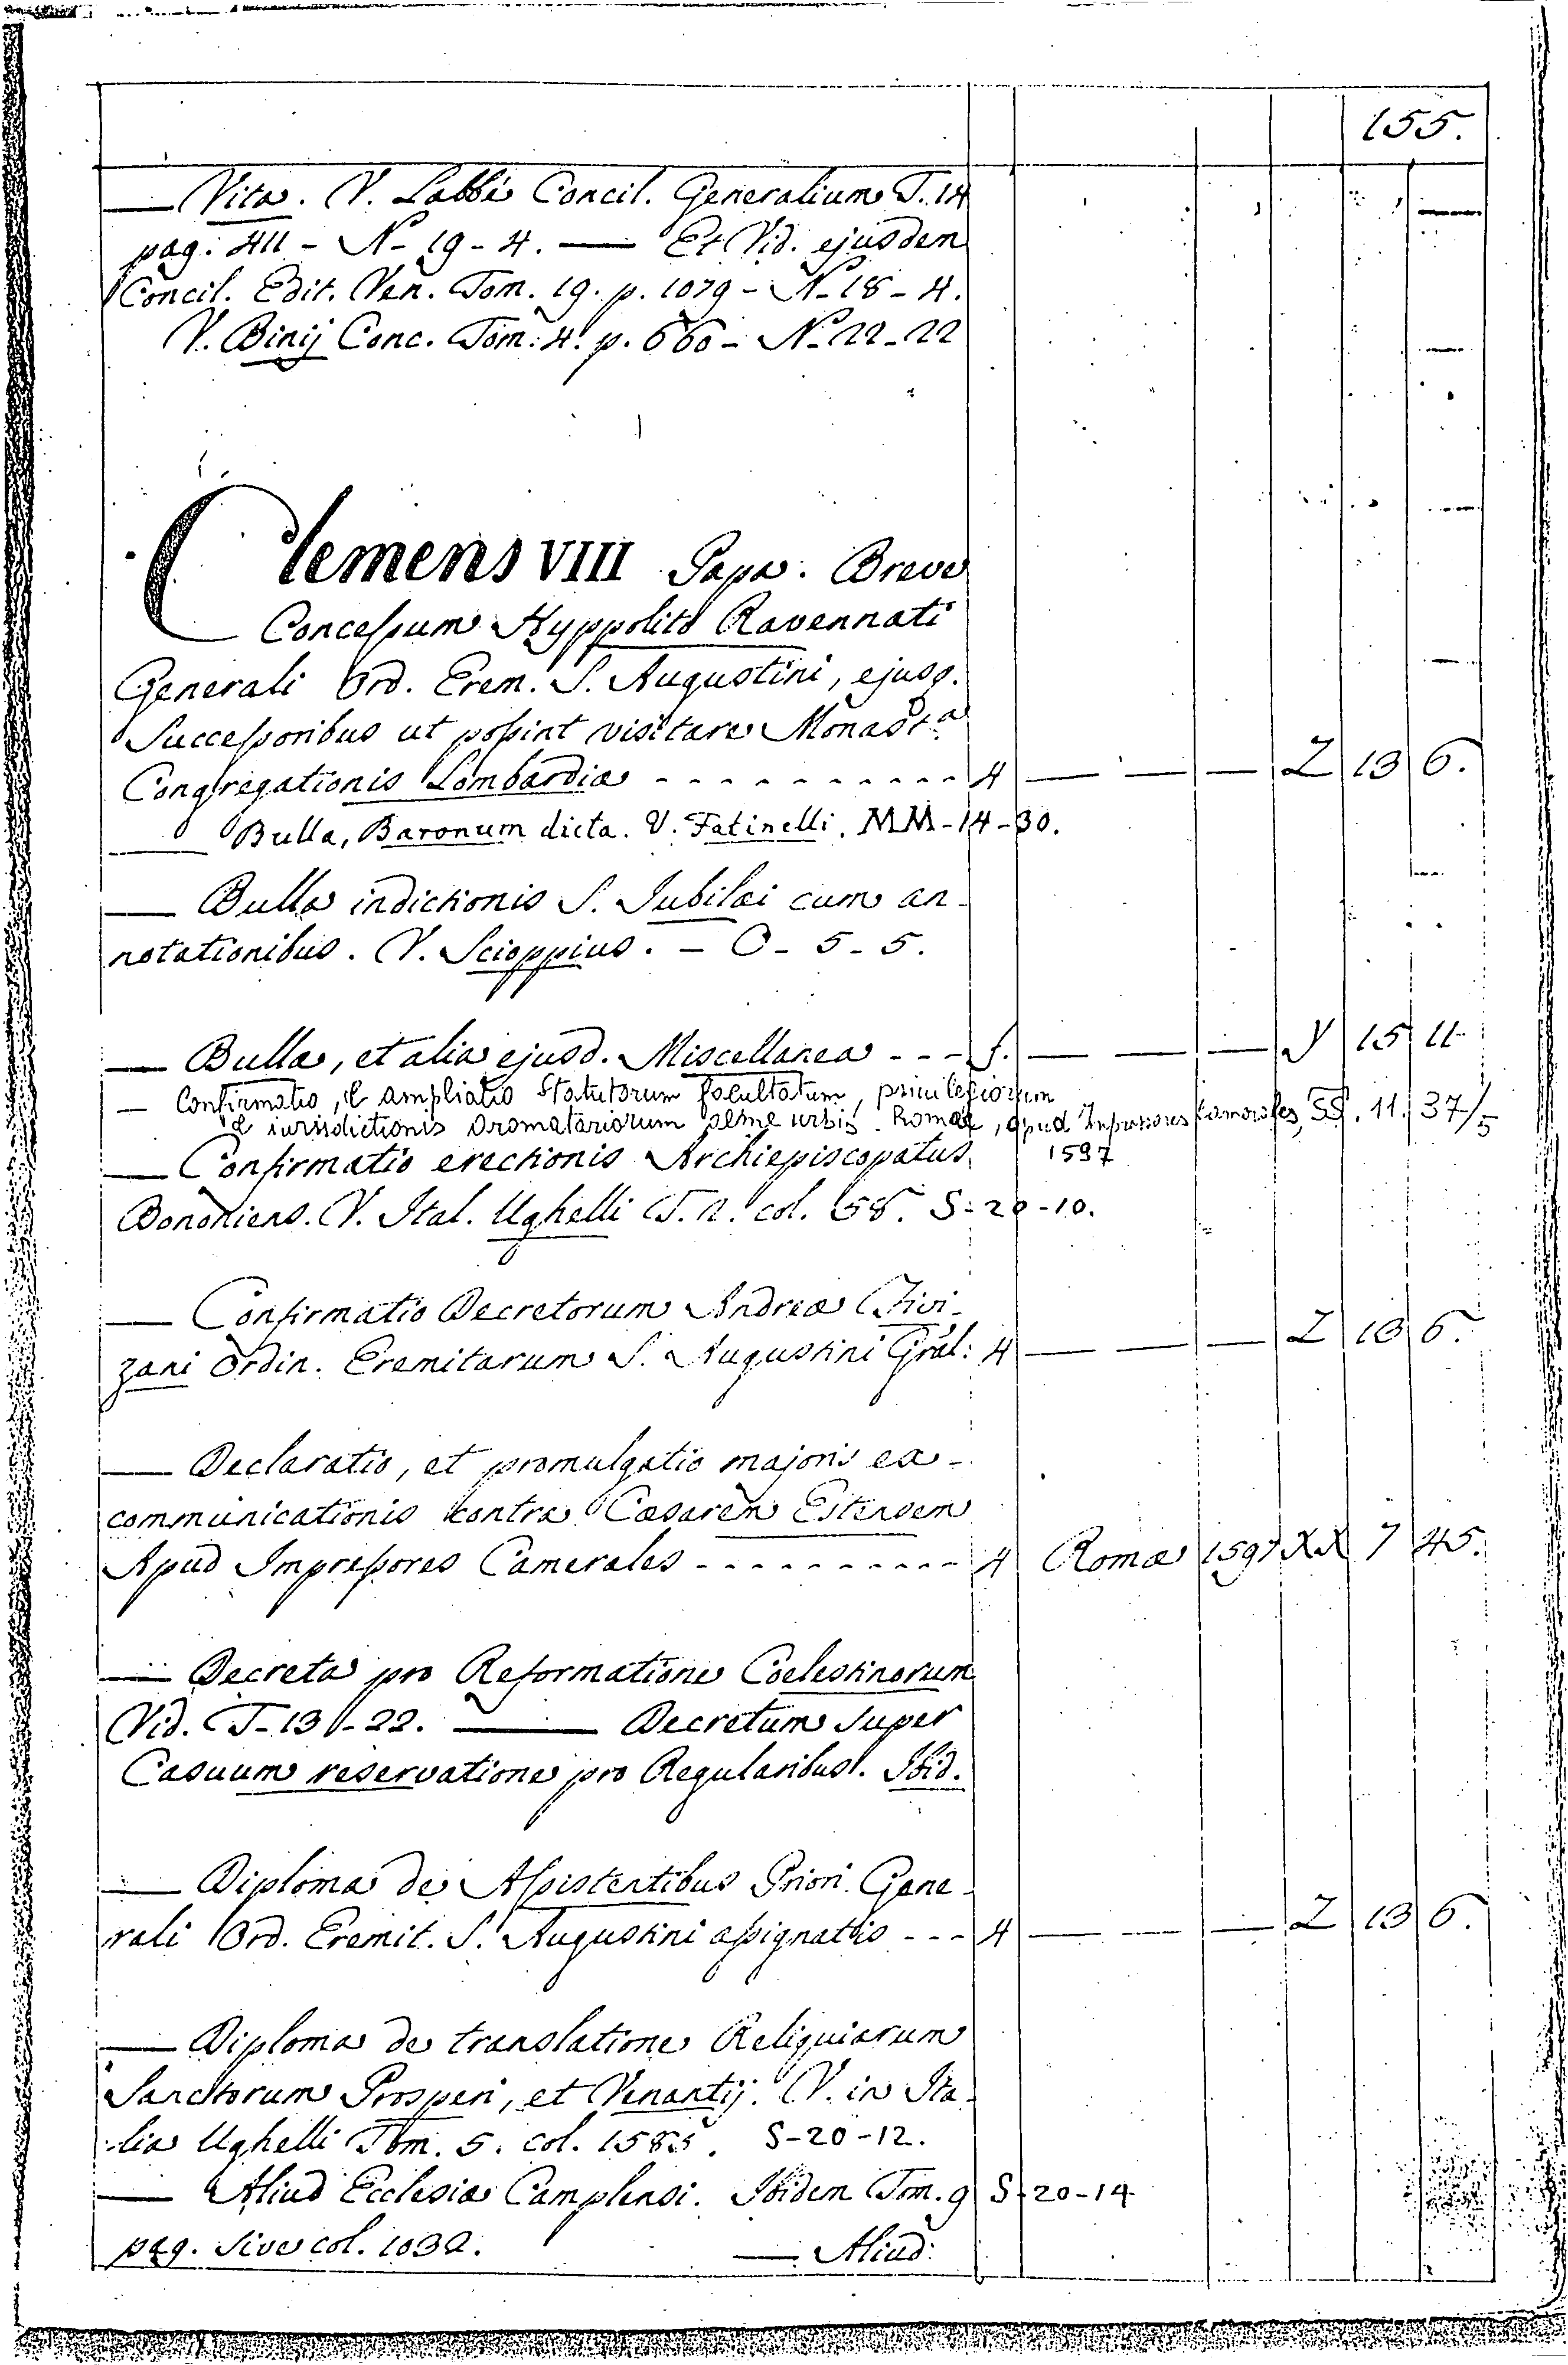 155.
— Vita. V. Labbè Concil. Generalium T. 14
pag. 411 - N- 19 - 4. — Et Vid. ejusdem
Concil. Edit. Ven. Tom. 19. p. 1079 - N- 18 - 4.
V. Binij Conc. Tom. 4. p. 660 - N- 22-22
Clemens VIII Papa. Breve
Concessum Hyppolito Ravennati
Generali Ord. Erem. S. Augustini, ejusq.
Successoribus ut possint visitare Monast.ª
Congregationis Lombardiæ - - - - - - - - - - 4 — — — Z 13 6.
— Bulla, Baronum dicta. V. Fatinelli. MM-14-30.
— Bulla indictionis S. Jubilæi cum an-
notationibus. V. Scioppius. - O - 5 - 5.
— Bulla, et alia ejusd. Miscellanea - - - f. — — — Y 15 11
— Confirmatio, & ampliatio Statutorum facultatum, privilegiorum
& iurisdictionis Aromatariorum almæ urbis. Romæ, apud Impressores Camerales, SS. 11. 37/5
1597
— Confirmatio erectionis Archiepiscopatus
Bononiens. V. Ital. Ughelli T. 2. col. 58. S-20-10.
— Confirmatio Decretorum Andreæ Fivi-
zani Ordin. Eremitarum S. Augustini Grãl: 4 — — — Z 13 6.
— Declaratio, et promulgatio majoris ex-
communicationis contra Cæsarem Estensem
Apud Impressores Camerales - - - - - - - - - - 4 Romæ 1597 XX 7 45.
— Decreta pro Reformatione Coelestinorum
Vid. T-13-22. — Decretum super
Casuum reservatione pro Regularibus. Ibid.
— Diploma de Assistentibus Priori Gene-
rali Ord. Eremit. S. Augustini assignatis - - - 4 — — — Z 13 6.
— Diploma de translatione Reliquiarum
Sanctorum Prosperi, et Venantij. V. in Ita-
lia Ughelli Tom. 5. col. 1585. S-20-12.
— Aliud Ecclesiæ Camplensi. Ibidem Tom. 9 S-20-14
pag. sive col. 1032. — Aliud: